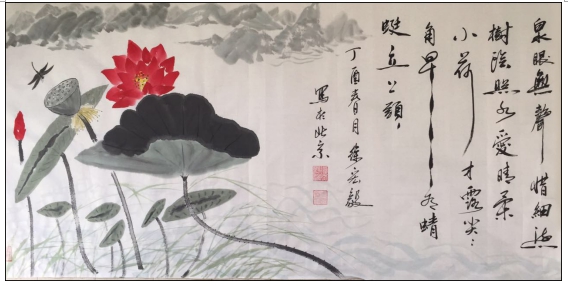 泉眼無聲惜細流
樹陰照水愛晴柔
小荷才露尖々
角早有蜻
蜓立上頭
丁酉春月徐宏毅
寫於北京